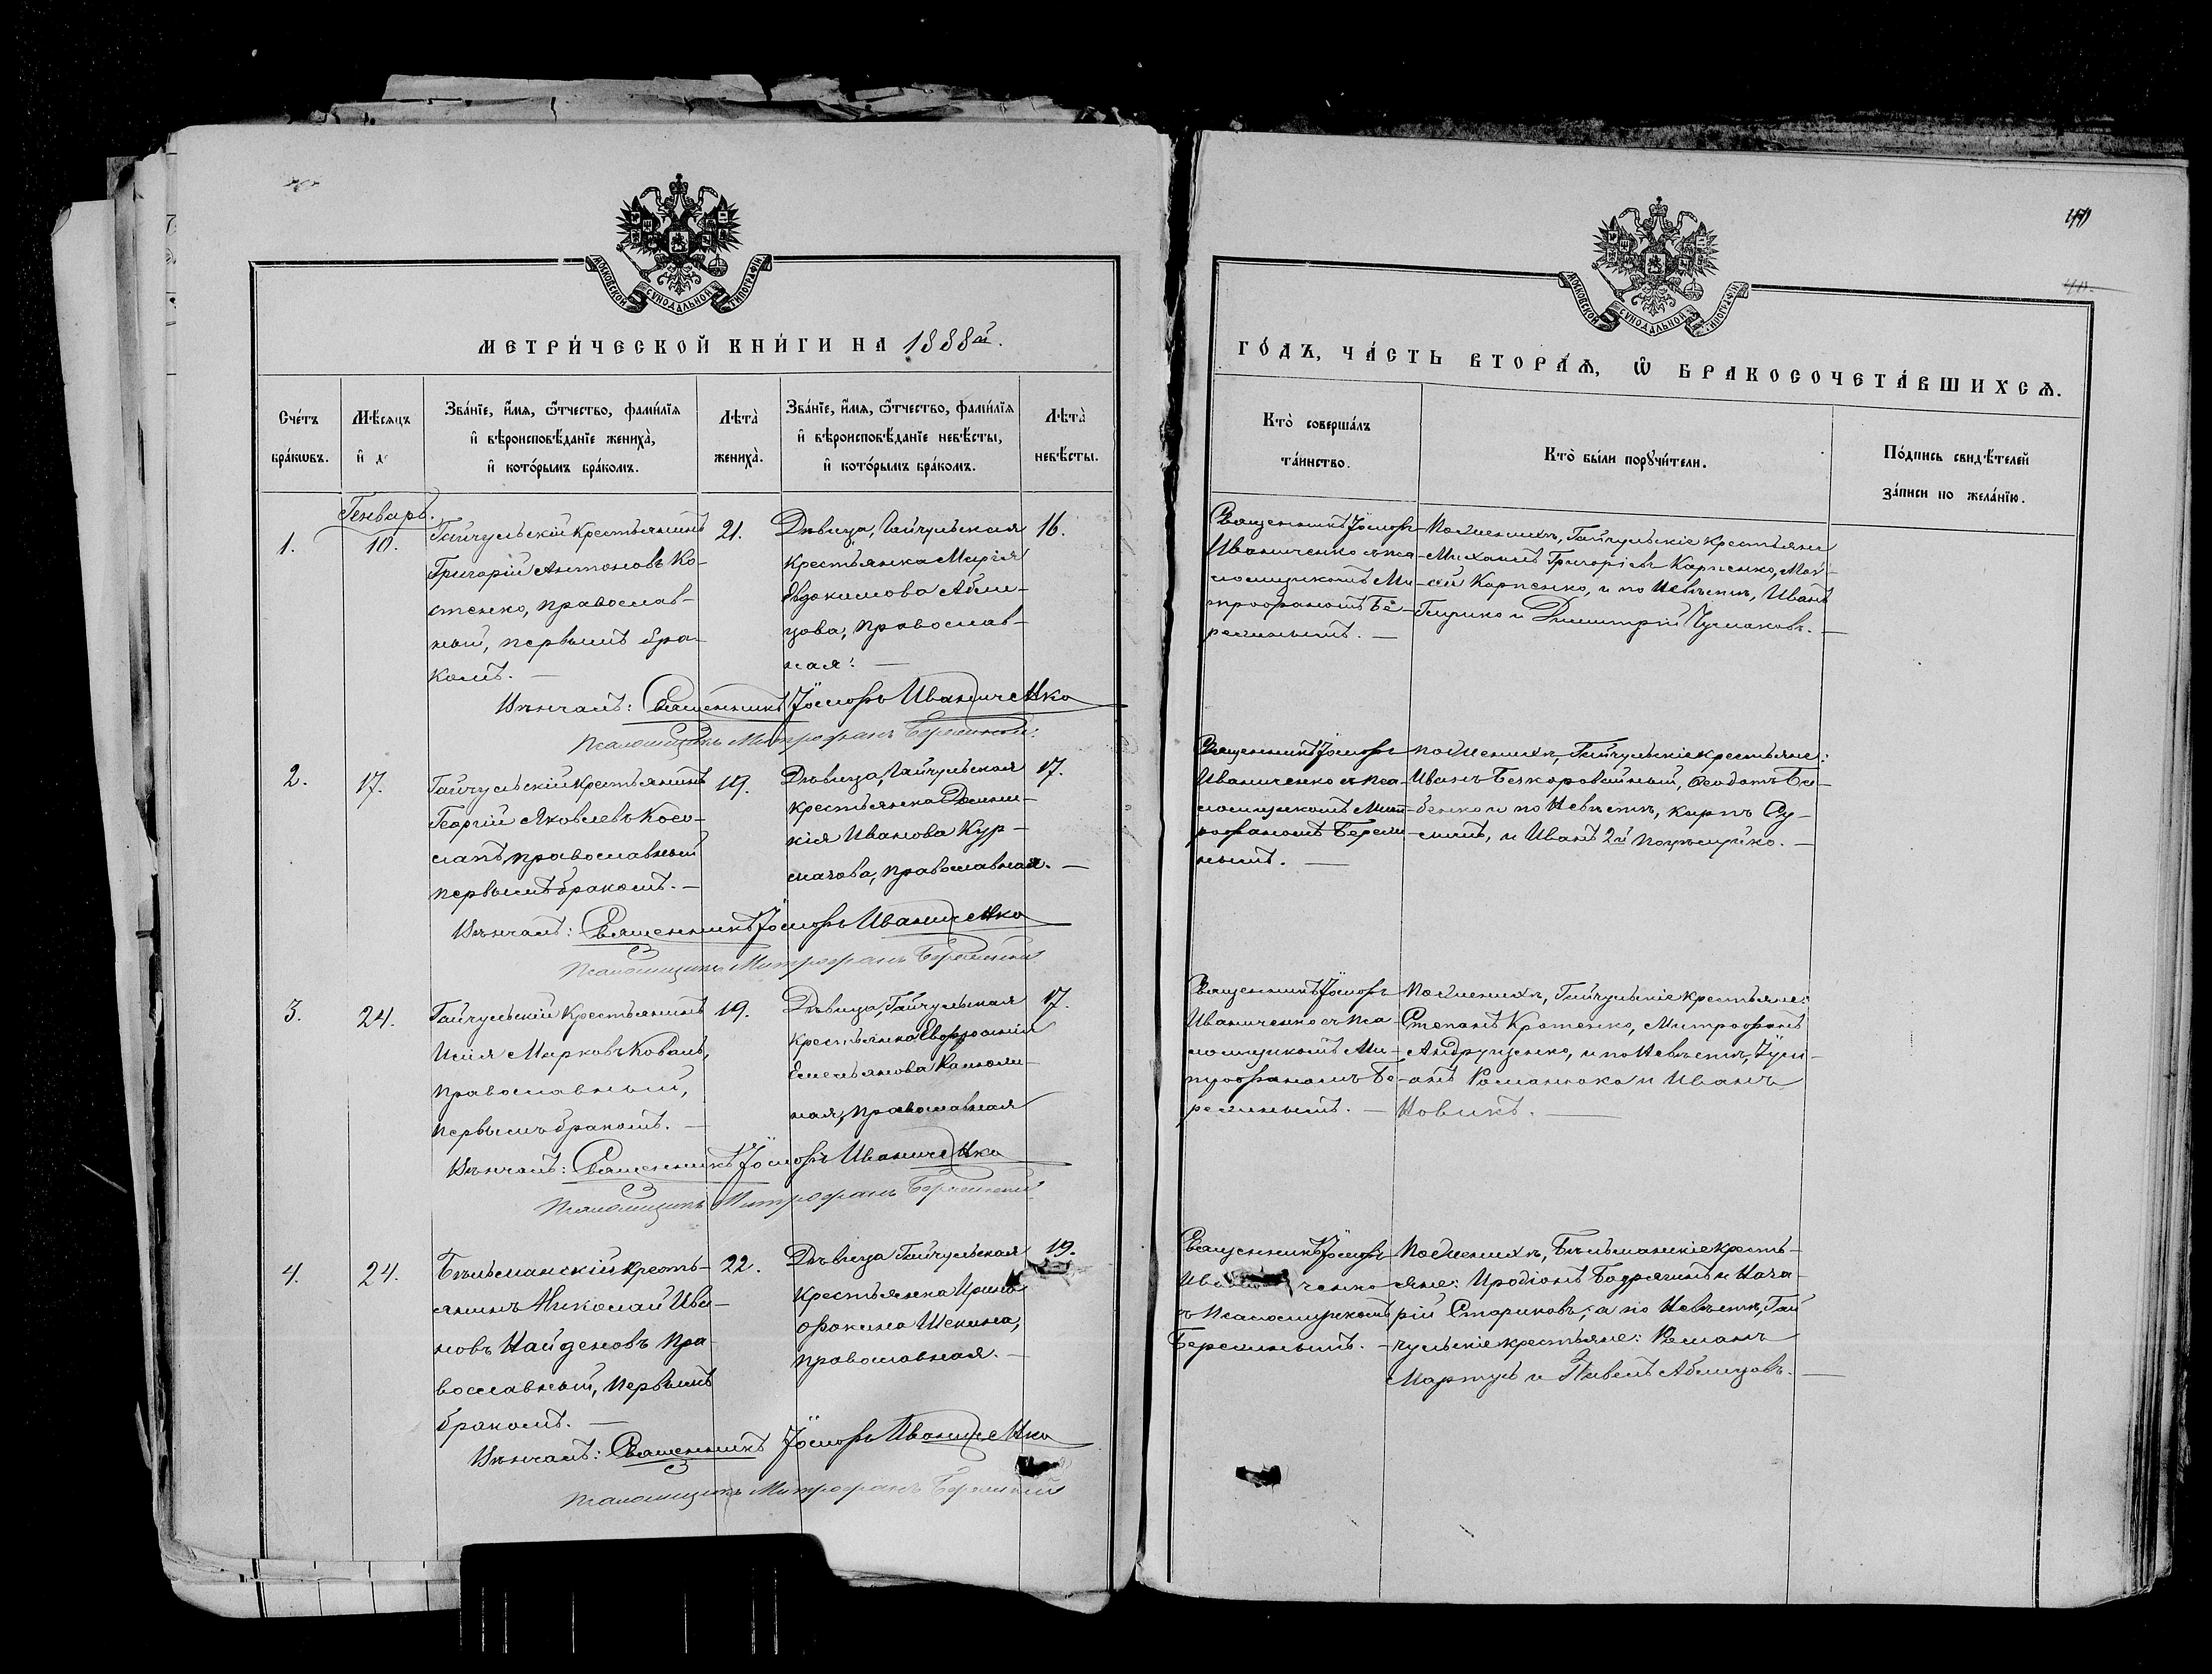 МОСКОВСКОЙ СѴНОДАЛЬНОЙ ТИПОГРАФІИ
МЕТРИ́ЧЕСКОЙ КНИ́ГИ НА 1888й.
Сче́тъ бра́кѡвъ.
Мѣ́сяцъ и҆ д
Зва́нїе, и҆́мѧ, ѻ҆́тчество, фами́лїѧ
и҆ вѣроисповѣ́данїе жениха̀,
и҆ кото́рымъ бра́комъ.
Лѣта̀ жениха̀.
Зва́нїе, и҆́мѧ, ѻ҆́тчество, фами́лїѧ
и҆ вѣроисповѣ́данїе невѣ́сты,
и҆ кото́рымъ бра́комъ.
Лѣта̀ невѣ́сты.
Генварь.
1.
10.
Гайчульскій крестьянинъ
Григорій Антоновъ Ко-
стенко, православ-
ный, первымъ бра-
комъ. —
21.
Дѣвица, Гайчульская
крестьянка Марія
Евдокимова Абли-
цова, православ-
ная. —
16.
Вѣнчалъ: Священникъ Іосифъ Иваниченко
Псаломщикъ Митрофанъ
2.
17.
Гайчульскій крестьянинъ
Георгій Яковлевъ Косо-
лапъ, православный
первымъ бракомъ. —
19.
Дѣвица, Гайчульская
крестьянка
кія Иванова Кур-
православная. —
17.
Вѣнчалъ: Священникъ Іосифъ Иваниченко
Псаломщикъ Митрофанъ
3.
24.
Гайчульскій крестьянинъ
Илія Марковъ Коваль,
православный,
первымъ бракомъ. —
19.
Дѣвица, Гайчульская
крестьянка Евфросинія
Емельянова
ная, православная
17.
Вѣнчалъ: Священникъ Іосифъ Иваниченко
Псаломщикъ Митрофанъ
4.
24.
Бѣльманскій кресть-
янинъ Николай Ива-
новъ Найденовъ пра-
вославный, первымъ
бракомъ. —
22.
Дѣвица Гайчульская
крестьянка Ирина
Фокина Шекина,
православная. —
19.
Вѣнчалъ: Священникъ Іосифъ Иваниченко
Псаломщикъ Митрофанъ
МОСКОВСКОЙ СѴНОДАЛЬНОЙ ТИПОГРАФІИ
ГО́ДЪ, ЧА́СТЬ ВТОРА́Ѧ, Ѡ҆ БРАКОСОЧЕТА́ВШИХСѦ.
Кто̀ соверша́лъ
та́инство.
Кто̀ бы́ли порꙋчи́тели.
По́дпись свидѣ́телей
за́писи по жела́нїю.
Священникъ Іосифъ
Иваниченко съ пса-
ломщикомъ Ми-
трофаномъ Бе-
реминымъ. —
По женихѣ, Гайчульскіе крестьяне
Михаилъ Григорьевъ Карпенко, Мои-
сей Карпенко, и по невѣстѣ, Иванъ
и Димитрій Чумаковъ. —
Священникъ Іосифъ
Иваниченко съ пса-
ломщикомъ Мит-
рофаномъ Береми-
нымъ. —
По женихѣ, Гайчульскіе крестьяне:
Иванъ Безкоровайный, Ѳеодотъ Ба-
бенко и по невѣстѣ, Карпъ Су-
и Иванъ 2й —
Священникъ Іосифъ
Иваниченко съ пса-
ломщикомъ Ми-
трофаномъ Бе-
реминымъ. —
По женихѣ, Гайчульскіе крестьяне:
Степанъ Кротенко, Митрофанъ
Андрущенко, и по невѣстѣ, Іули-
анъ и Иванъ
Новикъ. —
Священникъ Іосифъ
ченко
съ псаломщикомъ
Береминымъ. —
По женихѣ, Бѣльманскіе кресть-
яне: Иродіонъ Бодрягинъ и Наза-
рій Стариковъ; а по невѣстѣ, Гай
чульскіе крестьяне: Романъ
Мартусь и Павелъ Аблицовъ. —